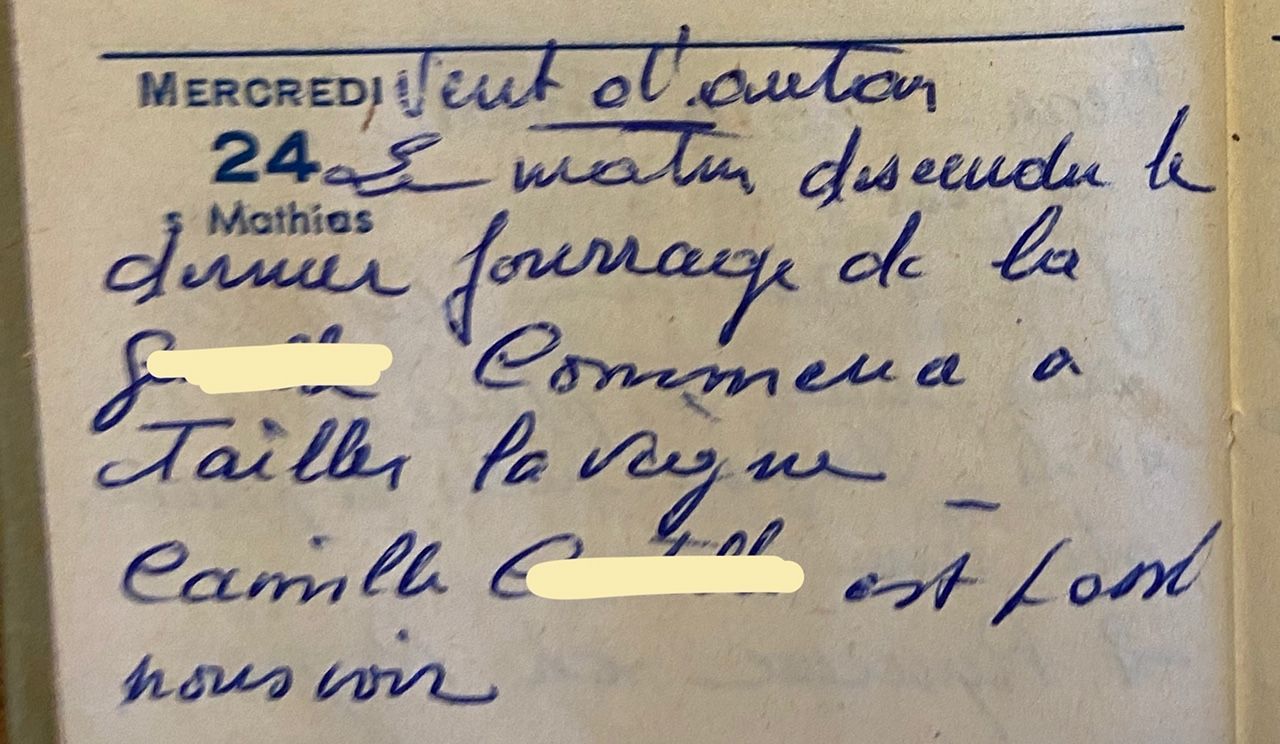 MERCREDI Vent d'autan
24 Le matin descendu le
s Mathias
dernier fourrage de la
Commencé a
Tailler la vigne _
Camille est passé
nous voir